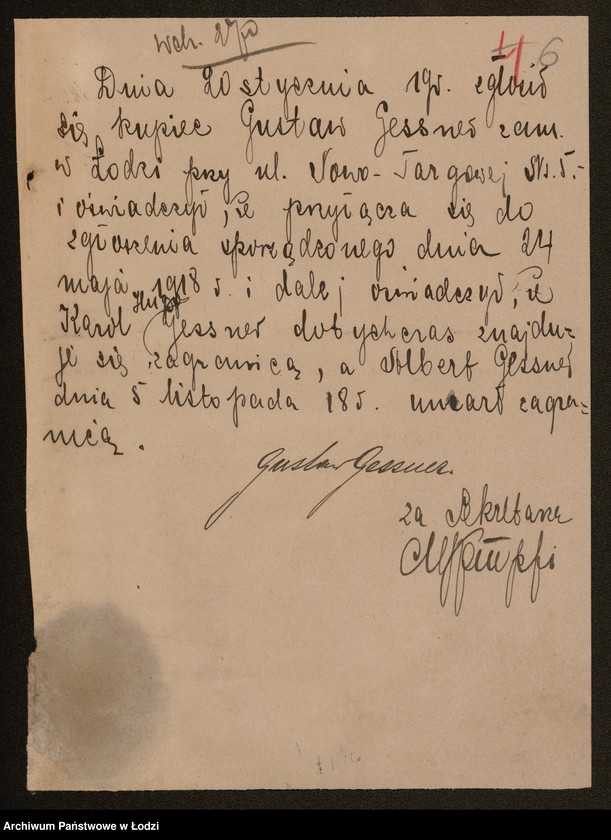 wch. 27/0
4 6
Dnia 20 stycznia 19r. zgłosił
się kupiec Gustaw Gessner zam.
w Łodzi przy ul. Nowo-Targowej Nr. 5.-
i oświadczył, że przyłącza się do
zgłoszenia sporządzonego dnia 24
maja 1918 r. i dalej oświadczył, że
Karol Hugo Gessner dotychczas znajdu-
je się zagranicą, a Albert Gessner
dnia 5 listopada 18 r. umarł zagra-
nicą.
Gustav Gessner.
za Sekretarza
Archiwum Państwowe w Łodzi